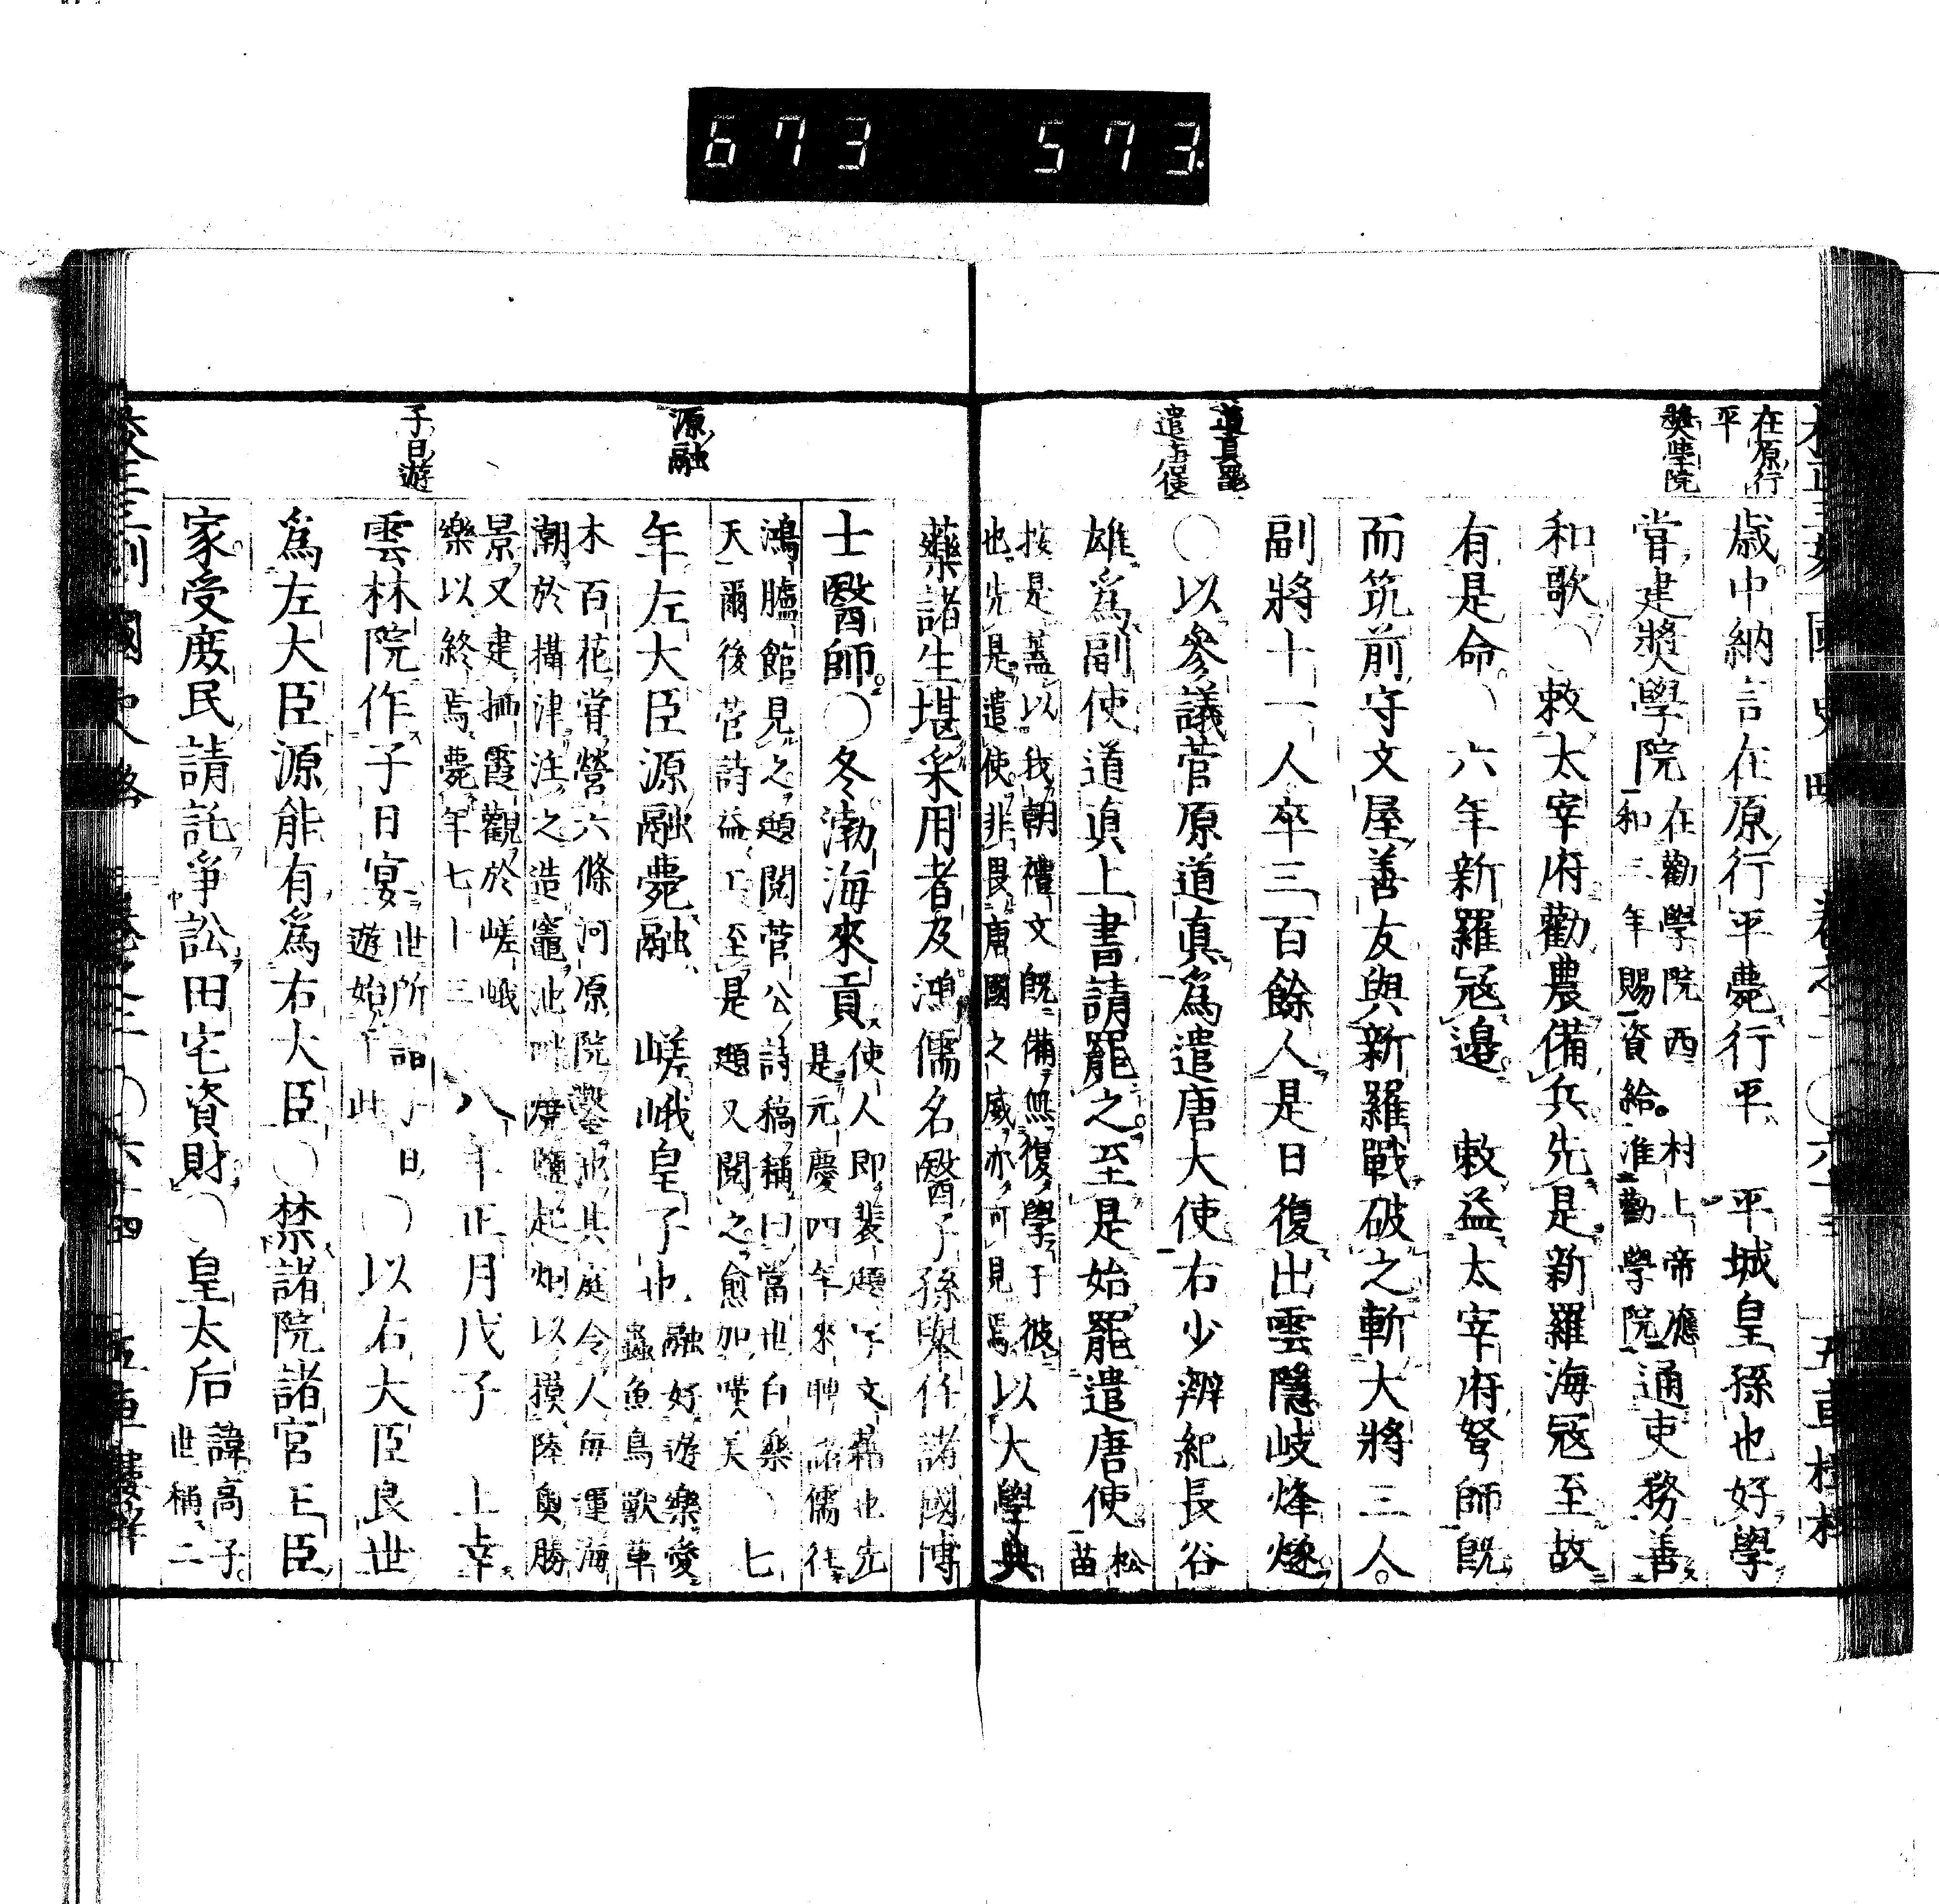 673 573
在原行
平
奬學院
道眞罷
遣唐使
歲中納言在原行平薨行平 平城皇孫也好學
嘗建奬學院在勸學院西村上帝應
和三年賜資給准勸學院通吏務善
和歌○敕太宰府勸農備兵先是新羅海寇至故
有是命○六年新羅寇邊 敕益太宰府弩師既
而筑前守文屋善友與新羅戰破之斬大將三人
副將十一人卒三百餘人是日復出雲隱岐烽燧
○以參議菅原道眞爲遣唐大使右少辨紀長谷
雄爲副使道眞上書請罷之至是始罷遣唐使松
苗
按是蓋以我朝禮文既備無復學于彼
也先是遣使非畏唐國之威亦可見焉以大學典
源融
子日遊
藥諸生堪采用者及鴻儒名醫子孫擧任諸國博
士醫師○冬渤海來貢使人即裴題字文籍也先
是元慶四年來聘諸儒往
鴻臚館見之題閱菅公詩稿稱曰當世白樂
天爾後菅詩益工至是題又閱之愈加嘆美○七
年左大臣源融薨融 嵯峨皇子也融好遊樂愛
蟲魚鳥獸草
木百花嘗營六條河原院鑿池其庭令人每運海
潮於攝津注之造竈池畔 鹽起烟以摸陸奧勝
景又建栖霞觀於嵯峨
樂以終焉薨年七十三○八年正月戊子 上幸
雲林院作子日宴世所謂子日
遊始于此○以右大臣良世
爲左大臣源能有爲右大臣○禁諸院諸宮王臣
家受庶民請託爭訟田宅資財○皇太后諱高子
世稱二